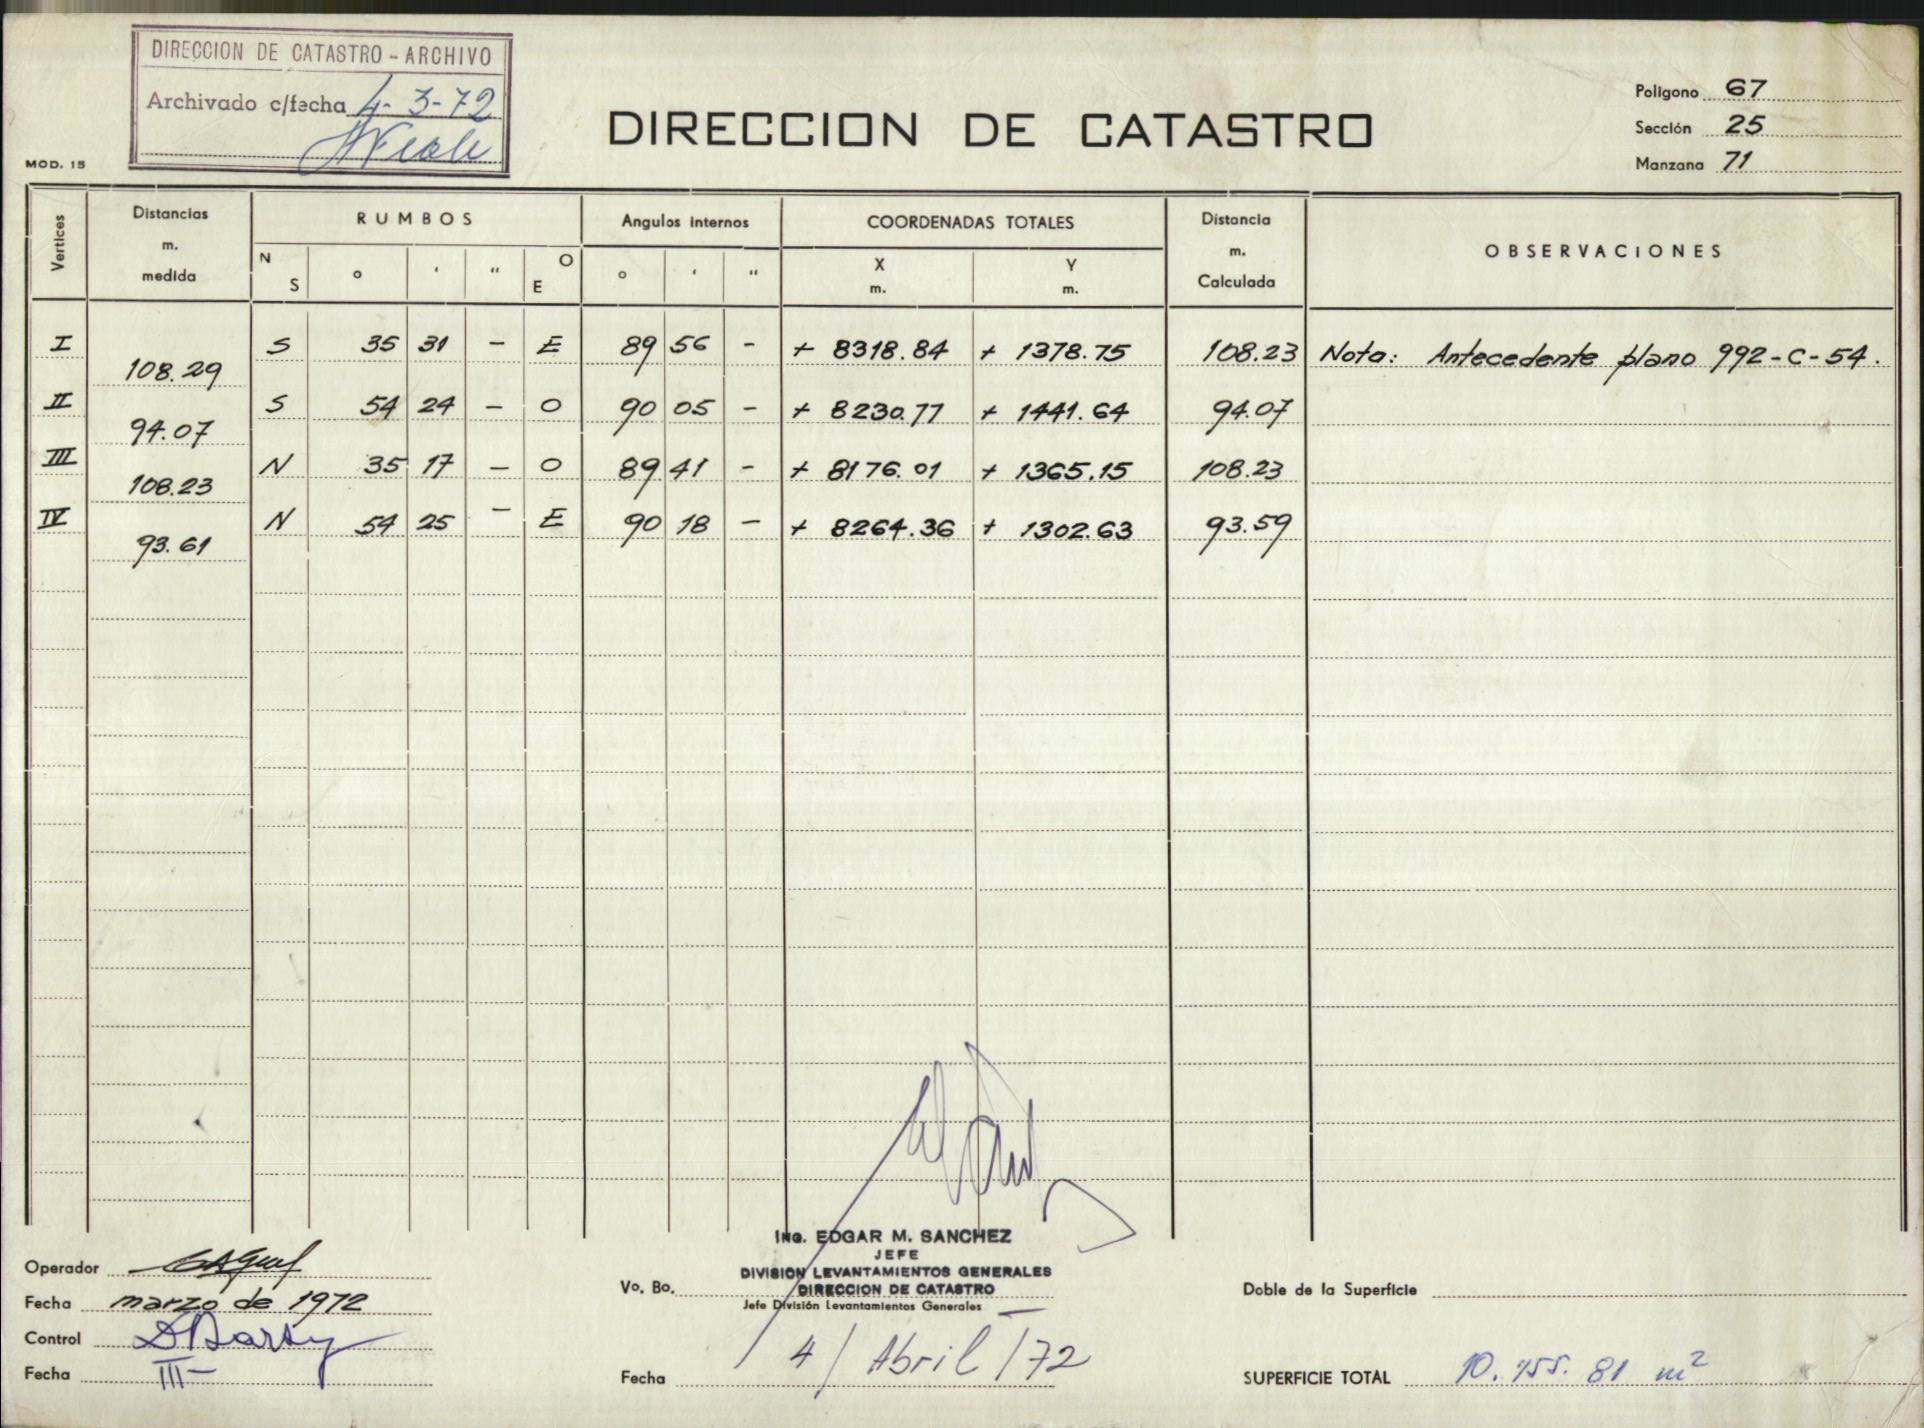 DIRECCION DE CATASTRO - ARCHIVO
Archivado c/fecha 4-3-72
MOD. 15
DIRECCION DE CATASTRO
Poligono 67
Sección 25
Manzana 71
Vertices
Distancias m. medida
RUMBOS
N S ° ' " O E
Angulos Internos
° ' "
COORDENADAS TOTALES
X m. Y m.
Distancia m. Calculada
OBSERVACIONES
I S 35 31 - E 89 56 - + 8318.84 + 1378.75 108.23 Nota: Antecedente plano 992-C-54.
108.29
II S 54 24 - O 90 05 - + 8230.77 + 1441.64 94.07
94.07
III N 35 17 - O 89 41 - + 8176.01 + 1365.15 108.23
108.23
IV N 54 25 - E 90 18 - + 8264.36 + 1302.63 93.59
93.61
Operador
Fecha marzo de 1972
Control
Fecha III-
Ing. EDGAR M. SANCHEZ
JEFE
DIVISION LEVANTAMIENTOS GENERALES
Vo. Bo. DIRECCION DE CATASTRO
Jefe División Levantamientos Generales
Fecha 4 / Abril / 72
Doble de la Superficie
SUPERFICIE TOTAL 10.155.81 m²